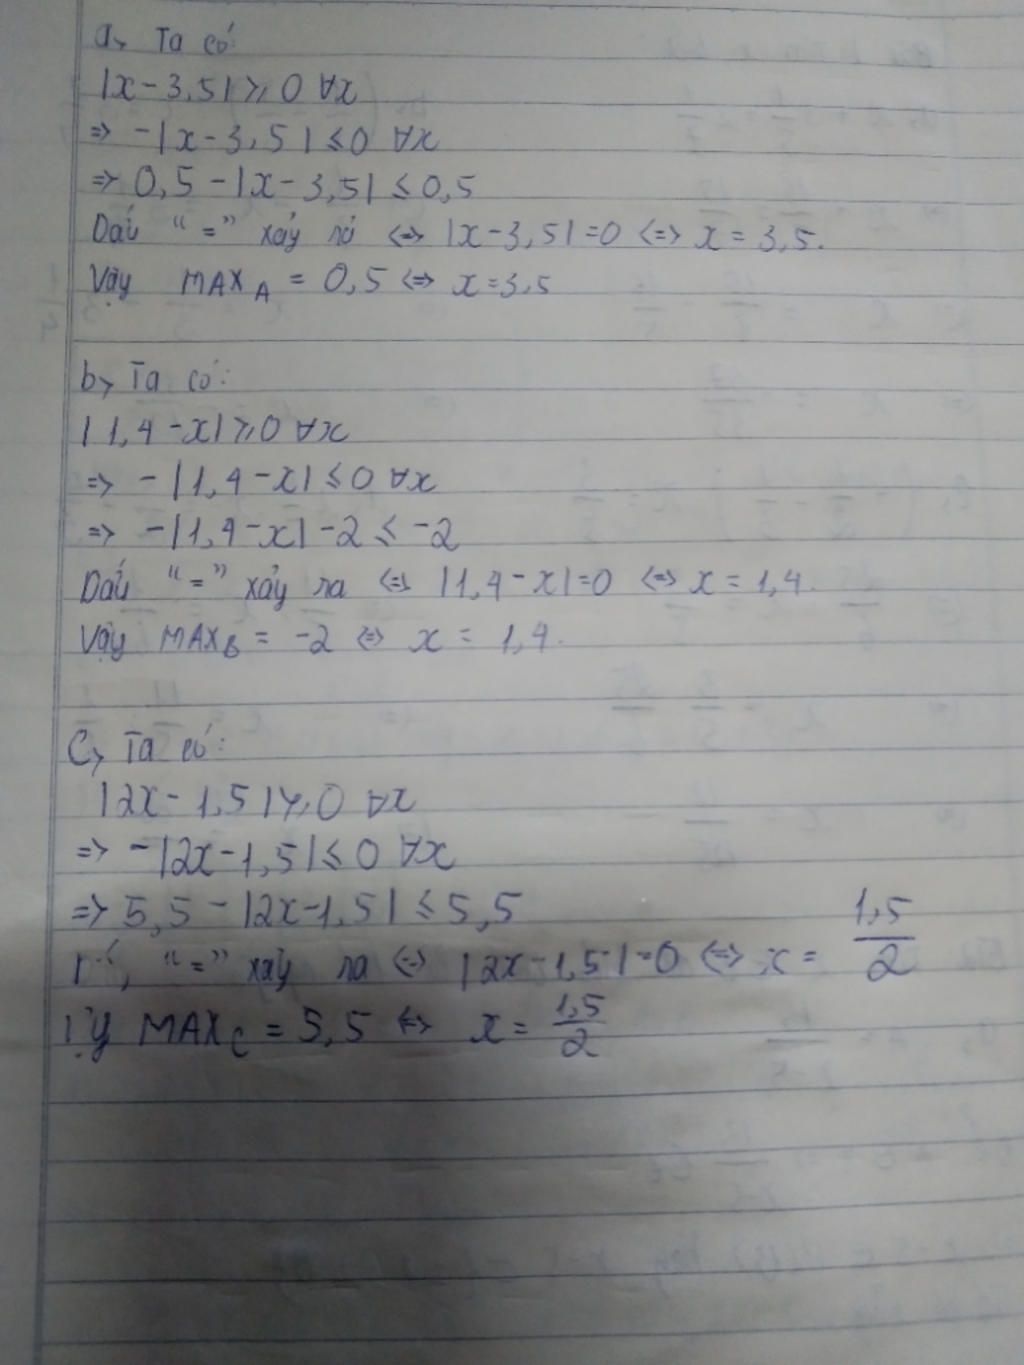 a, Ta có
|x - 3,5| ≥ 0 ∀x
=> -|x - 3,5| ≤ 0 ∀x
=> 0,5 - |x - 3,5| ≤ 0,5
Dấu "=" xảy ra <=> |x - 3,5| = 0 <=> x = 3,5.
Vậy MAX_A = 0,5 <=> x = 3,5
b, Ta có:
|1,4 - x| ≥ 0 ∀x
=> -|1,4 - x| ≤ 0 ∀x
=> -|1,4 - x| - 2 ≤ -2
Dấu "=" xảy ra <=> |1,4 - x| = 0 <=> x = 1,4.
Vậy MAX_B = -2 <=> x = 1,4.
C, Ta có:
|2x - 1,5| ≥ 0 ∀x
=> -|2x - 1,5| ≤ 0 ∀x
=> 5,5 - |2x - 1,5| ≤ 5,5
"=" xảy ra <=> |2x - 1,5| = 0 <=> x = 1,5/2
MAX_C = 5,5 <=> x = 1,5/2